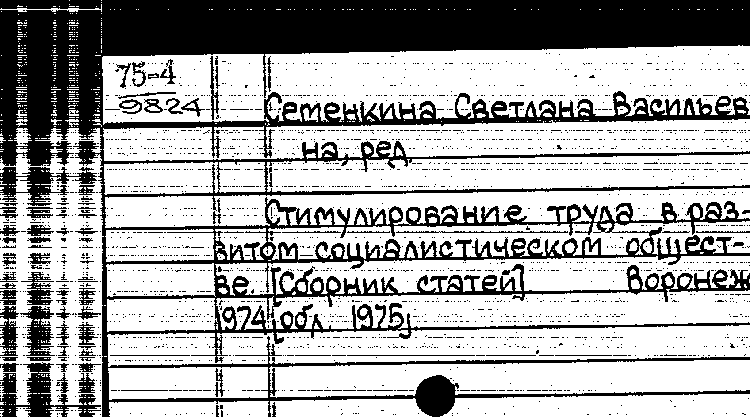 75-4
9824
Семенкина, Светлана Васильев
на, ред.
Стимулирование труда в раз-
витом социалистическом общест-
ве. [Сборник статей] Воронеж
1974 [обл. 1975]